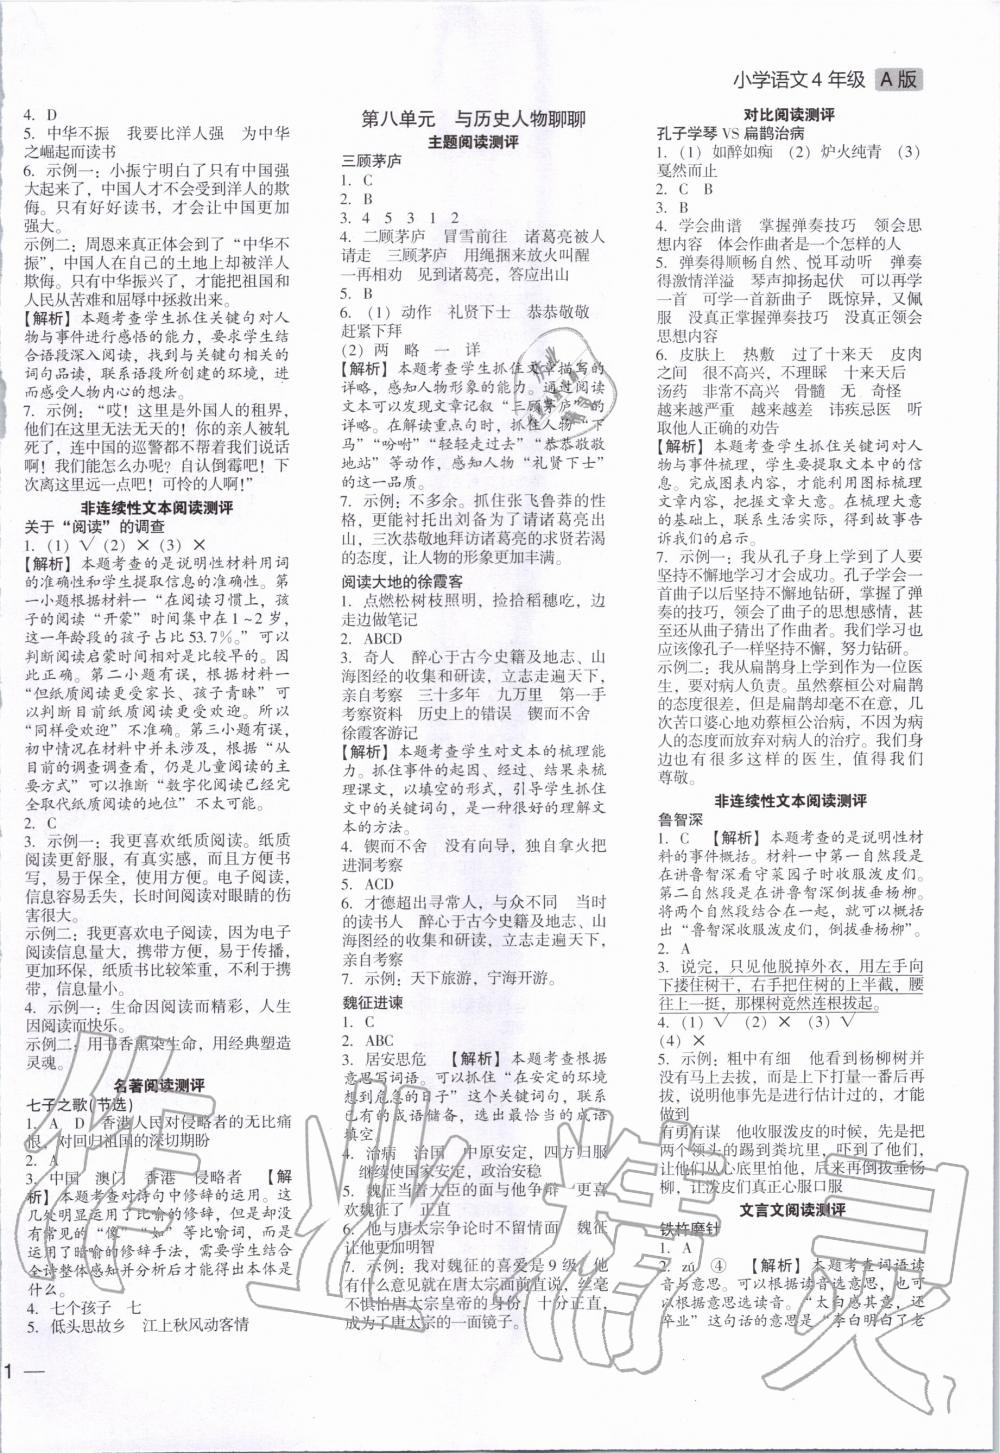 小学语文4年级 A版
4. D
5. 中华不振 我要比洋人强 为中华
之崛起而读书
6. 示例一：小振宁明白了只有中国强
大起来了，中国人才不会受到洋人的欺
侮。只有好好读书，才会让中国更加
强大。
示例二：周恩来真正体会到了“中华不
振”，中国人在自己的土地上却被洋人
欺侮。只有中华振兴了，才能把祖国和
人民从苦难和屈辱中拯救出来。
【解析】本题考查学生抓住关键句对人
物与事件进行感悟的能力，要求学生结
合语段深入阅读，找到与关键句相关的
词句品读，联系语段所创建的环境，进
而感受人物内心的想法。
7. 示例：“哎！这里是外国人的租界，
他们在这里无法无天的！你的亲人被轧
死了，连中国的巡警都不帮着我们说话
啊！我们能怎么办呢？自认倒霉吧！下
次离这里远一点吧！可怜的人啊！”
非连续性文本阅读测评
关于“阅读”的调查
1.（1）√（2）×（3）×
【解析】本题考查的是说明性材料用词
的准确性和学生提取信息的准确性。第
一小题根据材料一“在阅读习惯上，孩
子的阅读“开蒙”时间集中在1～2岁，
这一年龄段的孩子占比53.7%。”可以
判断阅读启蒙时间相对比较早。因
此正确。第二小题有误，根据材料一
“但纸质阅读更受家长、孩子青睐”可以
判断出目前纸质阅读更受欢迎。所以
“同样受欢迎”不准确。第三小题有误，
初中情况在材料中并未涉及，根据“从
目前的调查调查看，仍是儿童阅读的主
要方式”可以推断“数字化阅读已经完
全取代纸质阅读的地位”不太可能。
2. C
3. 示例一：我更喜欢纸质阅读。纸质
阅读更舒服，有真实感，而且方便书
写，易于保全，使用方便。电子阅读，
信息容易丢失，长时间阅读对眼睛的伤
害很大。
示例二：我更喜欢电子阅读，因为电子
阅读信息量大，携带方便，易于传播，
更加环保，纸质书比较笨重，不利于携
带，信息量小。
4. 示例一：生命因阅读而精彩，人生
因阅读而快乐。
示例二：用书香熏染生命，用经典塑造
灵魂。
名著阅读测评
七子之歌(节选)
1. A D 香港人民对侵略者的无比痛
恨，对回归祖国的深切期盼
2. A
3. 中国 澳门 香港 侵略者 【解
析】本题考查对诗句中修辞的运用。这
几处明显运用了比喻的修辞，但是却没
有常见的“像”“如”等比喻词，而是
运用了暗喻的修辞手法，需要学生结合
全诗整体感知并分析后才能得出本体是
什么。
4. 七个孩子 七
5. 低头思故乡 江上秋风动客情
第八单元 与历史人物聊聊
主题阅读测评
三顾茅庐
1. C
2. B
3. 4 5 3 1 2
4. 二顾茅庐 冒雪前往 诸葛亮被人
请走 三顾茅庐 用绳捆来放火叫醒
一再相劝 见到诸葛亮，答应出山
5. B
6.（1）动作 礼贤下士 恭恭敬敬
赶紧下拜
（2）两 略 一 详
【解析】本题考查学生抓住文章描写的
详略，感知人物形象的能力。通过阅读
文本可以发现文章记叙“三顾茅庐”的
详略。在解读重点句时，抓住人物“下
马”“吩咐”“轻轻走过去”“恭恭敬敬
地站”等动作，感知人物“礼贤下士”
的这一品质。
7. 示例：不多余。抓住张飞鲁莽的性格，
更能衬托出刘备为了请诸葛亮出
山，三次恭敬地拜访诸葛亮的求贤若渴
的态度，让人物的形象更加丰满。
阅读大地的徐霞客
1. 点燃松树枝照明，捡拾稻穗吃，边
走边做笔记
2. ABCD
3. 奇人 醉心于古今史籍及地志、山
海图经的收集和研读，立志走遍天下，
亲自考察 三十多年 九万里 第一手
考察资料 历史上的错误 锲而不舍
徐霞客游记
【解析】本题考查学生对文本的梳理能
力。抓住事件的起因、经过、结果来梳
理课文，以填空的形式，引导学生抓住
文中的关键词句，是一种很好的理解文
本的方法。
4. 锲而不舍 没有向导，独自拿火把
进洞考察
5. ACD
6. 才德超出寻常人，与众不同 当时
的读书人 醉心于古今史籍及地志、山
海图经的收集和研读，立志走遍天下，
亲自考察
7. 示例：天下旅游，宁海开游。
魏征进谏
1. C
2. AB
3. 居安思危 【解析】本题考查根据
意思写词语。可以抓住“在安定的环境
想到危急的日子”这个关键含义，联系
已有的成语储备，选出最恰当的成语
填空。
4. 治病 治国 中原安定，四方归服
继续使国家安定，政治安稳
5. 魏征当着大臣的面与他争辩 更喜
欢魏征了 正直
6. 他与唐太宗争论时不留情面 魏征
让他更加明智
7. 示例：我对魏征的喜爱是9级，他
有什么意见就在唐太宗面前直说，丝毫
不惧怕唐太宗皇帝的身份，十分正直，
成为了唐太宗的一面镜子。
对比阅读测评
孔子学琴 VS 扁鹊治病
1.（1）如醉如痴（2）炉火纯青（3）
戛然而止
2. C B
3. B
4. 学会曲谱 掌握弹奏技巧 领会思
想内容 体会作曲者是一个怎样的人
5. 弹奏得顺畅自然、悦耳动听 弹奏
得激情洋溢 琴声抑扬起伏 可以再学
一首 可学一首新曲子 既惊异，又佩
服 没有真正掌握弹奏技巧 没真正领会
思想内容
6. 皮肤上 热敷 过了十来天 皮肉
之间 很不高兴，不理睬 十来天后
汤药 非常不高兴 骨髓 无 奇怪
越来越严重 越来越差 讳疾忌医 听
取他人正确的劝告
【解析】本题考查学生抓住关键词对人
物与事件梳理，学生要提取文本中的信
息。完成阅读表格，才能利用图标梳理
文章内容，提取文章大意。在梳理大意
的基础上，联系生活实际，得到故事告
诉我们的启示。
7. 示例一：我从孔子身上学到了人要
坚持不懈地学习才会成功。孔子学一
首曲子都坚持不懈地钻研，掌握了弹
奏的技巧，领会了曲子的思想感情，甚
至还从曲子猜出了作曲者。我们学习也
应该像孔子一样坚持不懈，努力钻研。
示例二：我从扁鹊身上学到作为一位医
生，要对病人负责。虽然蔡桓公对扁鹊
的态度很不好，但是扁鹊却毫不在意，几
次苦口婆心地劝蔡桓公治病，不因为病
人的态度而放弃对病人的治疗。我们身
边也有很多这样的医生，值得我们
尊敬。
非连续性文本阅读测评
鲁智深
1. C 【解析】本题考查的是说明性材
料的事件概括。材料一中第一自然段是
在讲鲁智深看守菜园子时收服泼皮们。
第二自然段是在讲鲁智深倒拔垂杨柳。
将两个自然段结合在一起，就可以概括
出“鲁智深收服泼皮们，倒拔垂杨柳”。
2. A
3. 说完，只见他脱掉外衣，用左手向
下搂住树干，右手把住树的上半截，腰
往上一挺，那棵树竟然连根拔起。
4.（1）√（2）×（3）√
（4）×
5. 示例：粗中有细 他看到杨柳树并
没有马上去拔，而是走到树前看看后再
拔，说明他是先进行估计过的，才能
做到
有勇有谋 他收服泼皮的时候，先是把
两个领头的踢到粪坑里，吓到了他们，
让他们不敢轻举妄动，后面再倒拔垂杨
柳，让泼皮们真正心服口服
文言文阅读测评
铁杵磨针
1. A
2. zú ④ 【解析】本题考查词语读
音与意思。可以根据读音选意思，也可
以根据意思选读音。“太白感其意，还
卒业”这句话的意思是“李白明白了老
1 —
作业精灵